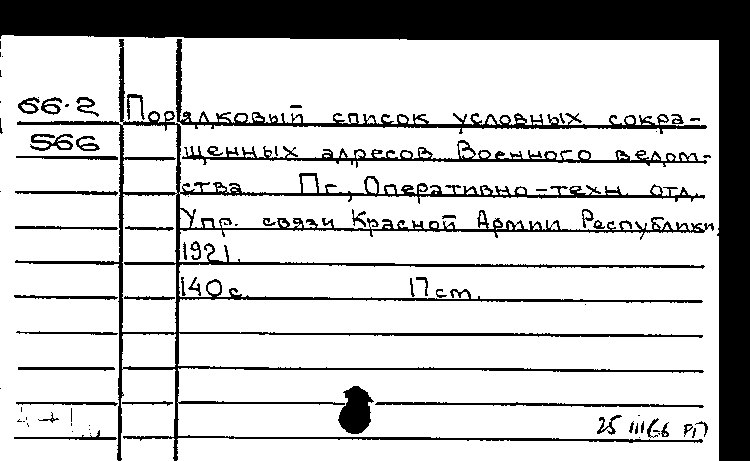 66.2 Порядковый список условных сокра-
566 щенных адресов Военного ведом-
ства Пг., Оперативно-техн. отд.
Упр. связи Красной Армии Республики,
1921.
140 с. 17 ст.
25 III 66 РП